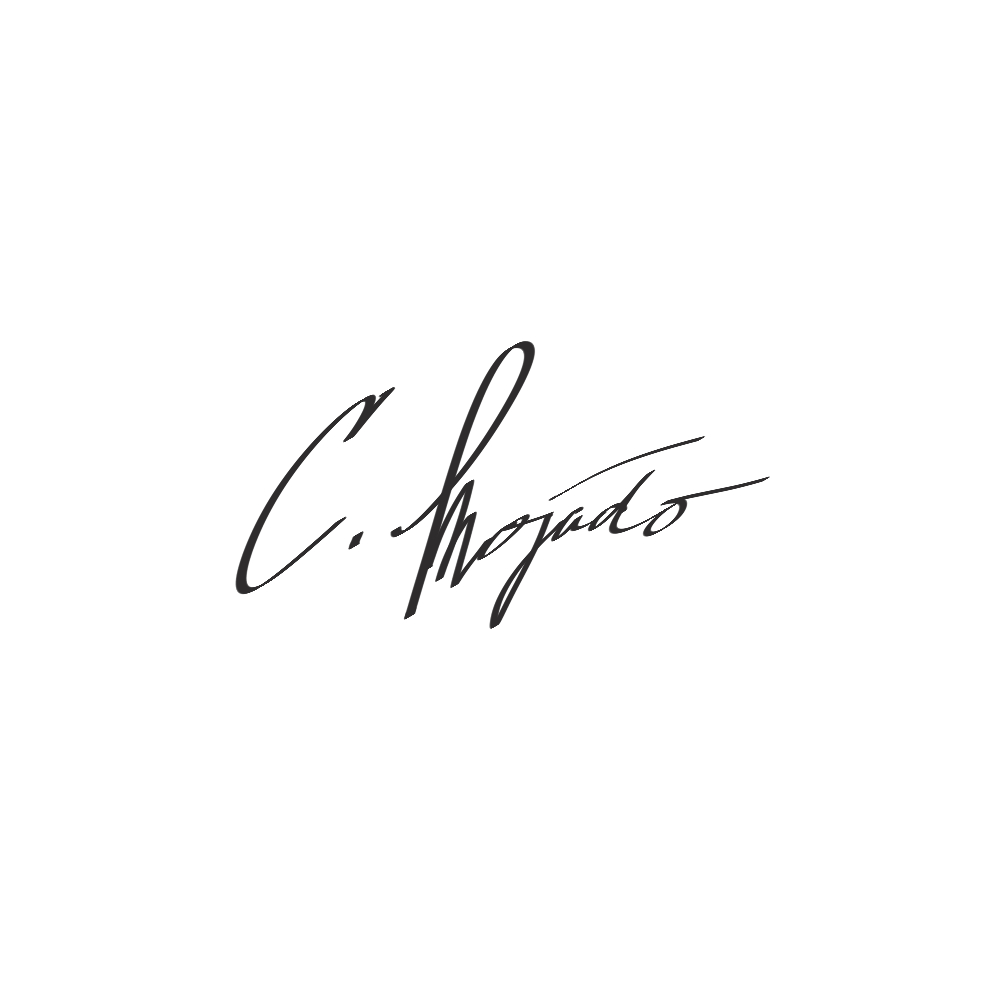 C. Mojado